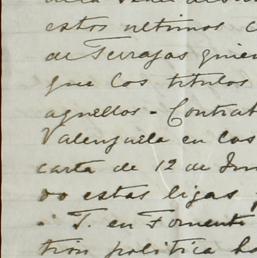 estos ultimos
de Terrazas quien
que los titulos
aquellos - Contrat
Valenzuela en los
carta de 12 de Jun
do estas ligas
T. en Fomento
tión politica ha